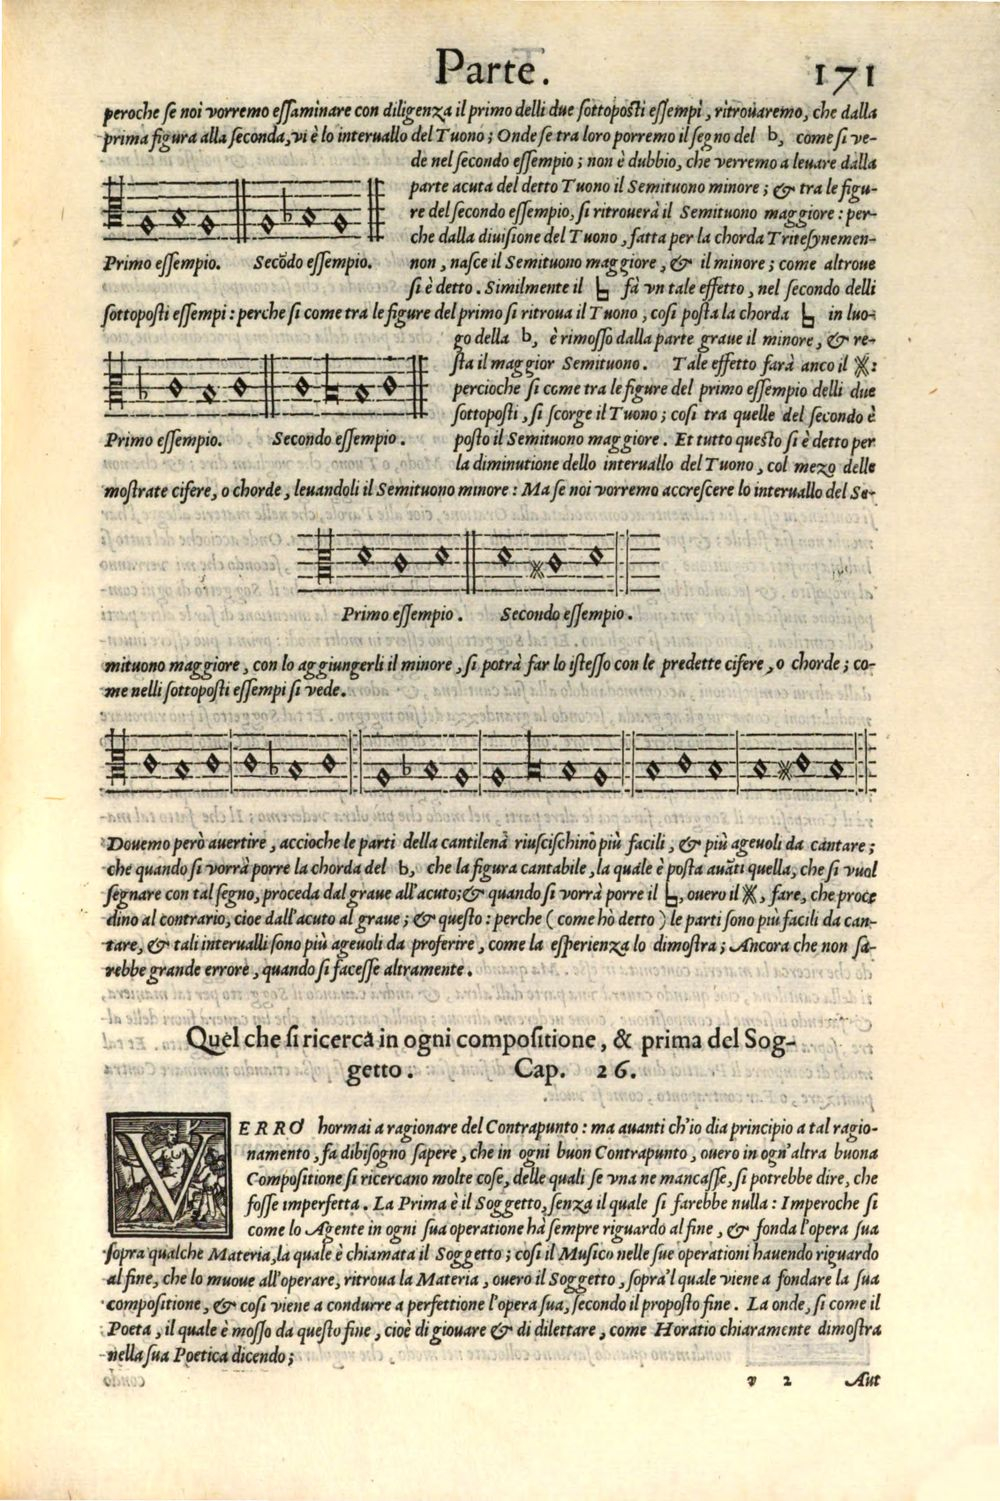 Parte. 171
peroche se noi vorremo essaminare con diligenza il primo delli due sottoposti essempi, ritrouaremo, che dalla
prima figura alla seconda, vi è lo interuallo del Tuono; Onde se tra loro porremo il segno del ♭, come si ve-
de nel secondo essempio; non è dubbio, che verremo a leuare dalla
parte acuta del detto Tuono il Semituono minore; & tra le figu-
re del secondo essempio, si ritrouerà il Semituono maggiore: per-
che dalla diuisione del Tuono, fatta per la chorda Tritesynemen-
Primo essempio. Secõdo essempio.
non, nasce il Semituono maggiore, & il minore; come altroue
si è detto. Similmente il ♮ fà vn tale effetto, nel secondo delli
sottoposti essempi: perche si come tra le figure del primo si ritroua il Tuono, cosi posta la chorda ♮ in luo-
go della ♭, è rimosso dalla parte graue il minore, & re-
sta il maggior Semituono. Tale effetto farà anco il X:
percioche si come tra le figure del primo essempio delli due
sottoposti, si scorge il Tuono; cosi tra quelle del secondo è
Primo essempio. Secondo essempio.
posto il Semituono maggiore. Et tutto questo si è detto per
la diminutione dello interuallo del Tuono, col mezo delle
mostrate cifere, o chorde, leuandoli il Semituono minore: Ma se noi vorremo accrescere lo interuallo del Se-
Primo essempio. Secondo essempio.
mituono maggiore, con lo aggiungerli il minore, si potrà far lo istesso con le predette cifere, o chorde; co-
me nelli sottoposti essempi si vede.
Douemo però auertire, accioche le parti della cantilena riuscischino più facili, & più ageuoli da cantare;
che quando si vorrà porre la chorda del ♭, che la figura cantabile, la quale è posta auãti quella, che si vuol
segnare con tal segno, proceda dal graue all'acuto; & quando si vorrà porre il ♮, ouero il X, fare, che proce
dino al contrario, cioe dall'acuto al graue; & questo: perche (come hò detto) le parti sono più facili da can-
tare, & tali interualli sono più ageuoli da proferire, come la esperienza lo dimostra; Ancora che non sa-
rebbe grande errore, quando si facesse altramente.
Quel che si ricerca in ogni compositione, & prima del Sog-
getto. Cap. 26.
VERRO hormai a ragionare del Contrapunto: ma auanti ch'io dia principio a tal ragio-
namento, fa dibisogno sapere, che in ogni buon Contrapunto, ouero in ogn'altra buona
Compositione si ricercano molte cose, delle quali se vna ne mancasse, si potrebbe dire, che
fosse imperfetta. La Prima è il Soggetto, senza il quale si farebbe nulla: Imperoche si
come lo Agente in ogni sua operatione hà sempre riguardo al fine, & fonda l'opera sua
sopra qualche Materia, la quale è chiamata il Soggetto; cosi il Musico nelle sue operationi hauendo riguardo
al fine, che lo muoue all'operare, ritroua la Materia, ouero il Soggetto, sopra'l quale viene a fondare la sua
compositione, & cosi viene a condurre a perfettione l'opera sua, secondo il proposto fine. La onde, si come il
Poeta, il quale è mosso da questo fine, cioè di giouare & di dilettare, come Horatio chiaramente dimostra
nella sua Poetica dicendo;
v 2 Aut